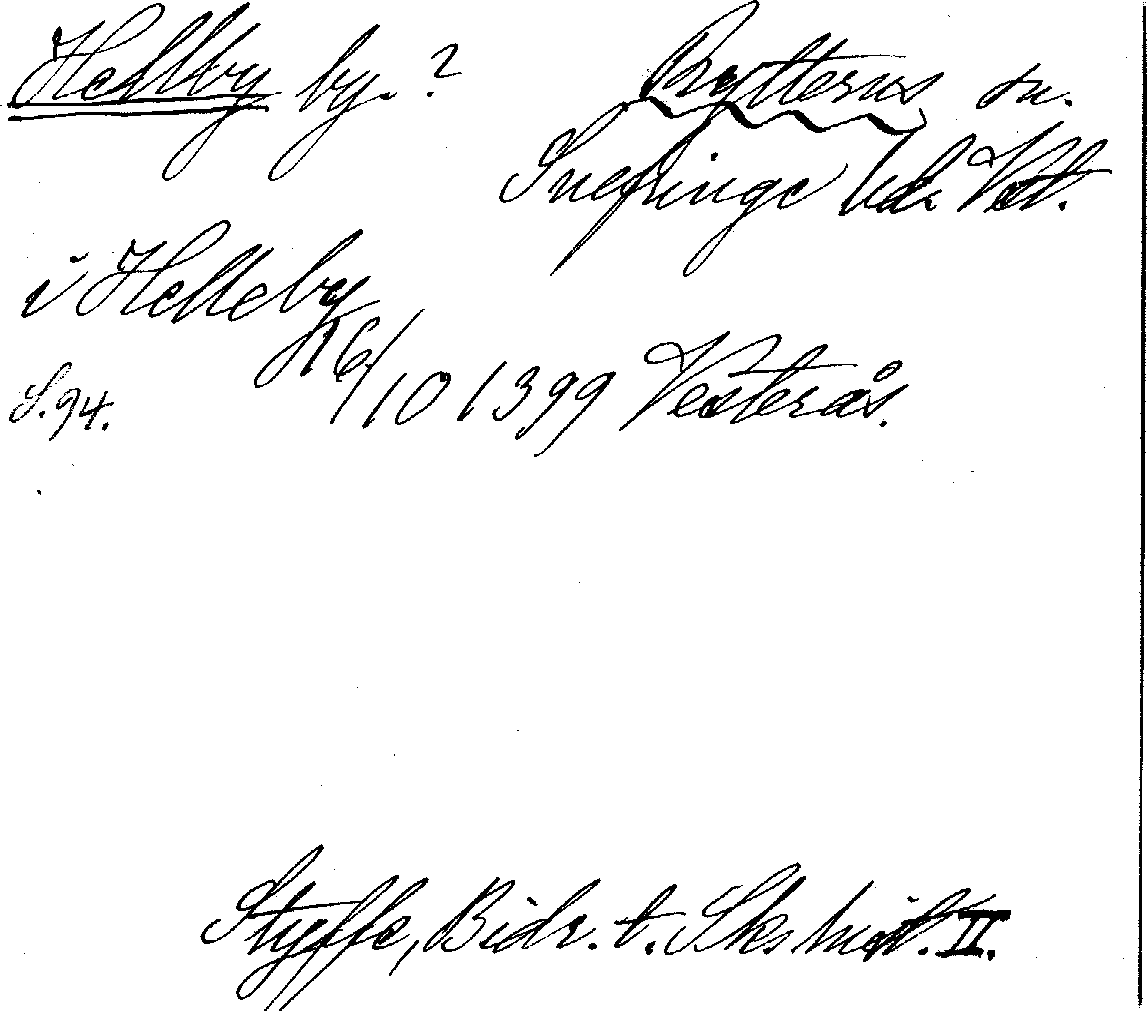 Hellby by. ? Rytterns sn.
Snefringe hd. Vst.
i Helleby
S. 94. 16/10 1399 Vesterås.
Styffe, Bidr. t. Sks hist. II.